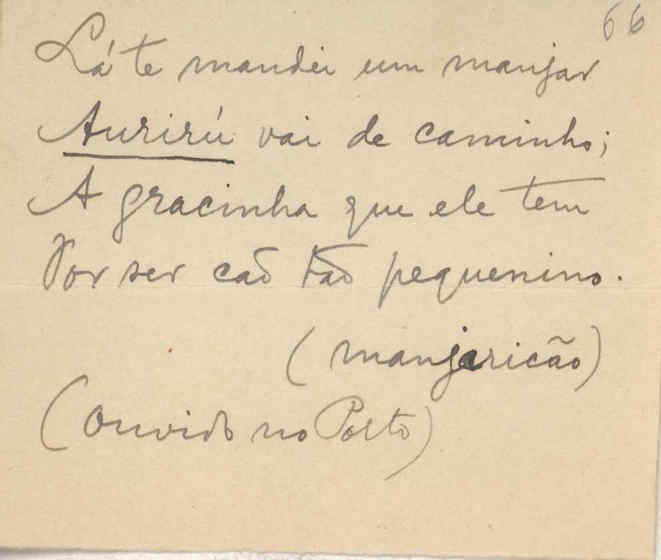 66
Lá te mandei um manjar
Aurirú vai de caminho;
A gracinha que ele tem
Por ser cão tão pequenino.
(manjaricão)
(Ouvido no Porto)